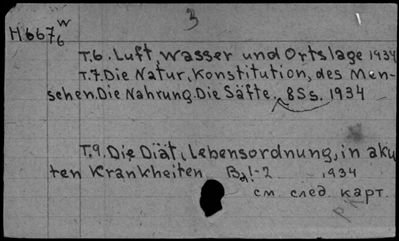 3
H667 w/6
Т.6. Luft, Wasser und Ortslage 1934
Т.7. Die Natur, Konstitution, des Men-
schen. Die Nahrung. Die Säfte. 8Ss. 1934
Т.9. Die Diät, Lebensordnung, in aku
ten Krankheiten Bd1-2 1934
см след. карт.